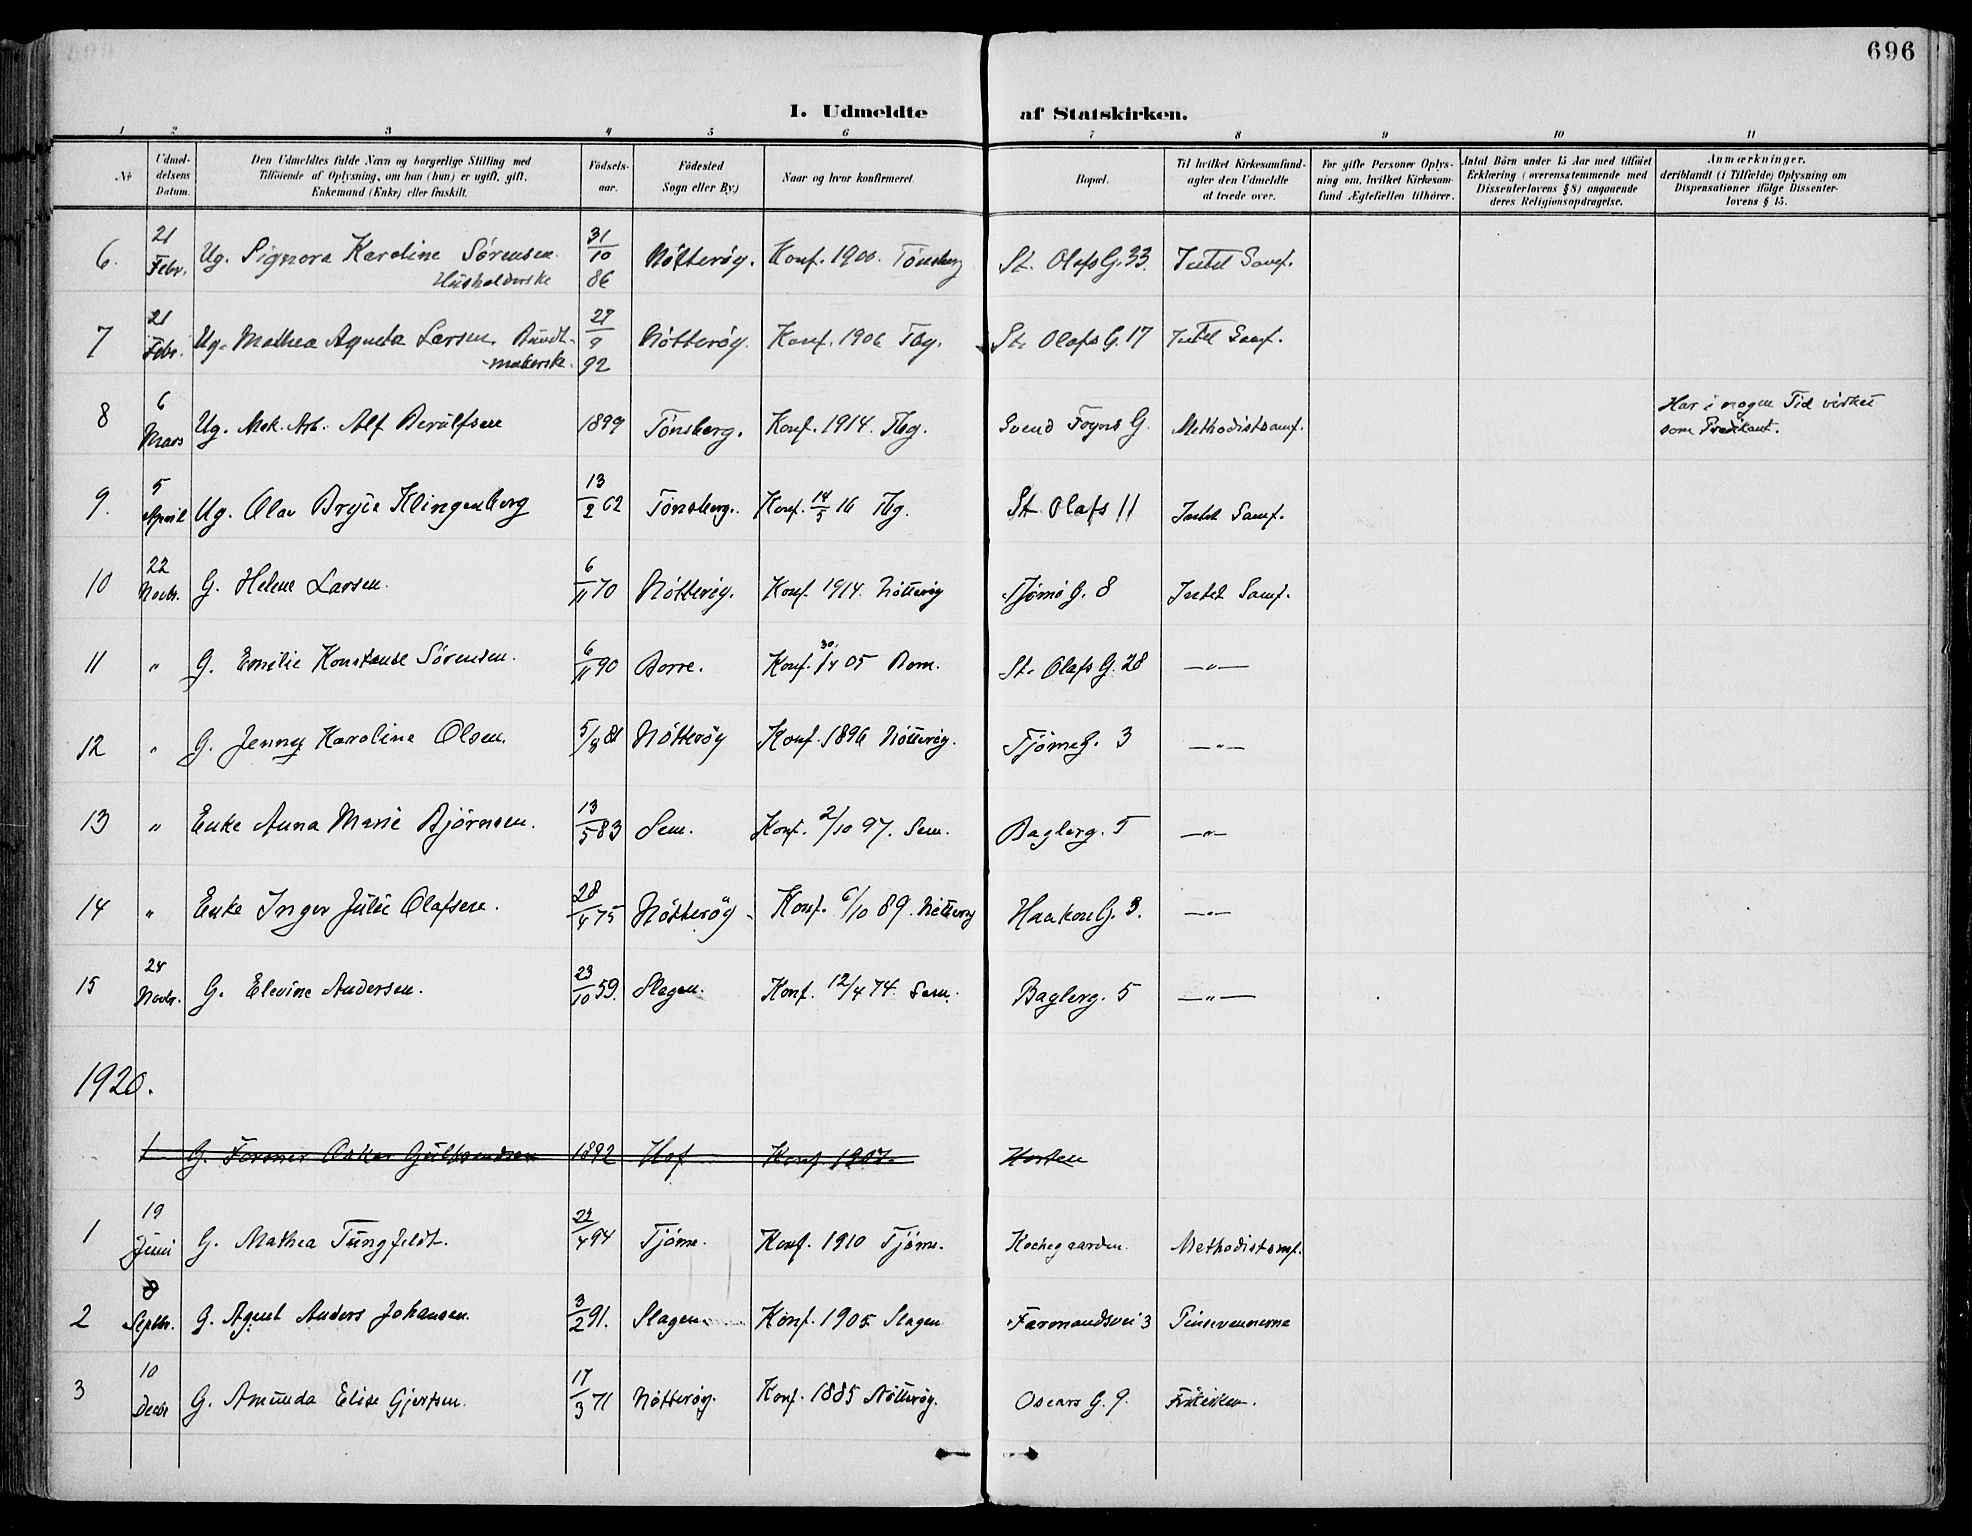 696
I. Udmeldte af Statskirken.
1 2 3 4 5 6 7 8 9 10 11
No
Udmeldelsens Datum.
Den Udmeldtes fulde Navn og borgerlige Stilling med Tilføiende af Oplysning, om han (hun) er ugift, gift, Enkemand (Enke) eller fraskilt.
Fødselsaar.
Fødested Sogn eller By.)
Naar og hvor konfirmeret.
Bopæl.
Til hvilket Kirkesamfund agter den Udmeldte at træde over.
For gifte Personer Oplysning om, hvilket Kirkesamfund Ægtefællen tilhører.
Antal Børn under 15 Aar med tilføiet Erklæring (overensstemmende med Dissenterlovens § 8) angaaende deres Religionsopdragelse.
Anmærkninger, deriblandt (i Tilfælde) Oplysning om Dispensationer ifølge Dissenterlovens § 15.
6. 21 Febr. Ug. Signora Karoline Sørensen. Husholderske 31/10 86 Nøtterøy. Konf. 1900. Tønsberg St. Olafs G. 33. Intet Samf.
7 21 Febr. Ug. Mathea Agneta Larsen. Bundtmakerske. 27/9 92 Nøtterøy. Konf. 1906 Tbg. St. Olafs G. 17 Intet Samf.
8 6 Mars Ug. Mek. Arb. Alf Berulfsen 1899 Tønsberg. Konf. 1914. Tbg. Svend Foyns G. Methodistsamf. Har i nogen Tid virket som Prædikant.
9. 5 April Ug. Olav Bryie Klingenberg 13/2 62 Tønsberg. Konf. 14/5 16 Tbg. St. Olafs 11 Intet Samf.
10 22 Novbr. G. Helene Larsen. 6/11 70 Nøtterøy. Konf. 1914. Nøtterøy Tjømø G. 8 Intet Samf.
11 " G. Emilie Konstanse Sørensen. 6/11 90 Borre. Konf. 30/4 05 Borre. St. Olafs G. 28 —"—
12 " G. Jenny Karoline Olsen. 5/8 81 Nøtterøy Konf. 1896 Nøtterøy. Tjømø G. 3 —"—
13 " Enke Anna Marie Bjørnsen. 13/5 83 Sem. Konf. 2/10 97. Sem. Baglerg. 5 —"—
14 " Enke Inger Julie Olafsen. 28/4 75 Nøtterøy. Konf. 6/10 89. Nøtterøy Haakon G. 3. —"—
15 24 Novbr. G. Elevine Andersen. 23/10 59. Slagen. Konf. 12/4 74. Sem. Baglerg. 5 —"—
1920.
1 G. Former Oskar Gulbrandsen 1892 Hof Konf. 1907. Horten
1 19 Juni G. Mathea Tungfeldt. 22/4 94 Tjøme. Konf. 1910 Tjøme. Kochegaarden. Methodistsmf.
2 8 Septbr. G. Agnet Anders Johansen. 3/2 91. Slagen. Konf. 1905 Slagen Farmandsvei 3 Pinsevennerne
3 10 Decbr G. Amunda Elise Gjertsen. 17/3 71 Nøtterøy. Konf. 1885 Nøtterøy. Oscars G. 9. Frikirken.